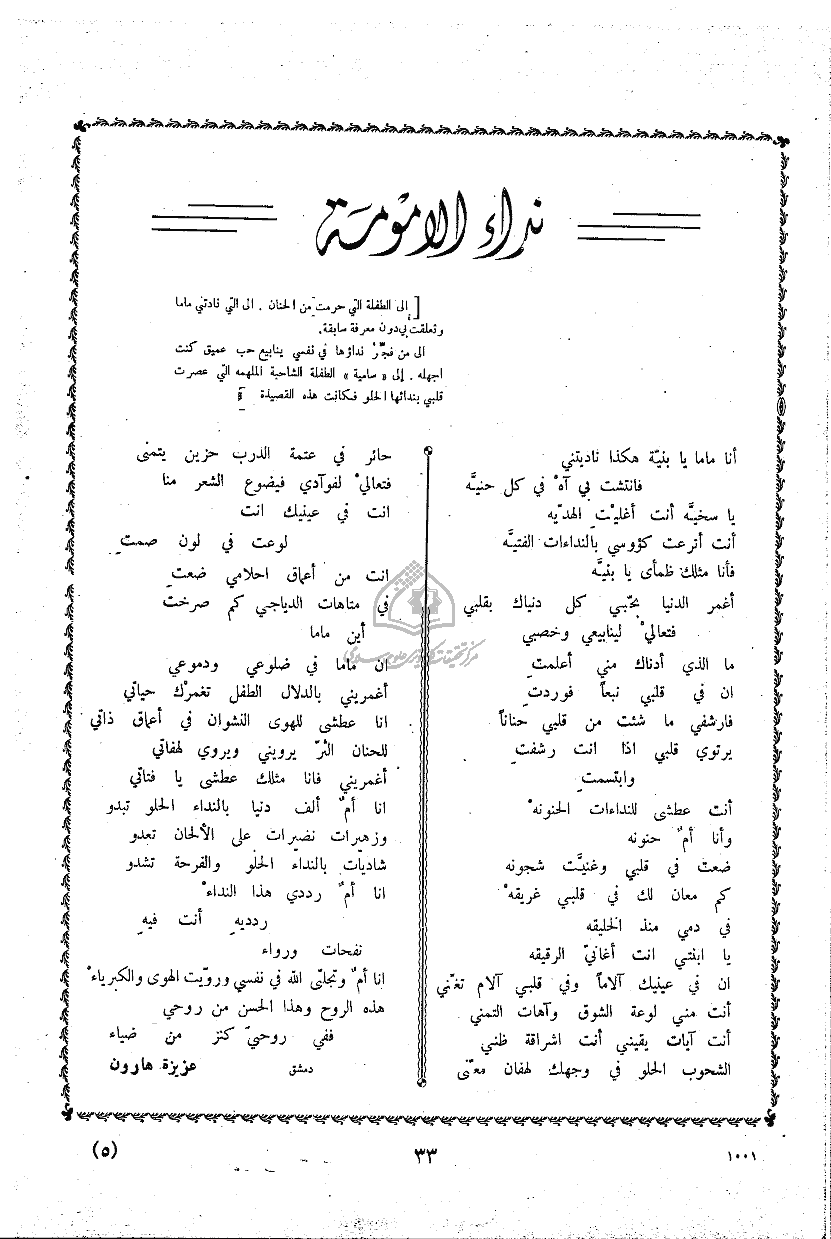 نداء الامومة
[ إلى الطفلة التي حرمت من الحنان . الى التي نادتني ماما
وتعلقت بي دون معرفة سابقة.
الى من فجّر نداؤها في نفسي ينابيع حب عميق كنت
اجهله . إلى « سامية » الطفلة الشاحبة الملهمه التي عصرت
قلبي بندائها الحلو فكانت هذه القصيدة ]
أنا ماما يا بنيّة هكذا ناديتني
فانتشت بي آهْ في كل حنيَّه
يا سخيَّه أنت أغليْتِ الهديّه
أنت أترعت كؤوسي بالنداءات الفتيَّه
فأنا مثلك ظمأى يا بنيَّه
أغمر الدنيا بحُبي كل دنياك بقلبي
فتعاليْ لينابيعي وخصبي
ما الذي أدناك مني أعلمتِ
ان في قلبي نبعاً فوردتِ
فارشفي ما شئت من قلبي حناناً
يرتوي قلبي اذا انت رشفتِ
وابتسمتِ
أنت عطشى للنداءات الحنونهْ
وأنا أمٌ حنونه
ضعتِ في قلبي وغنيَّت شجونه
كم معان لك في قلبي غريقهْ
في دمي منذ الخليقه
يا ابنتي انت أغانيّ الرقيقه
ان في عينيك آلاماً وفي قلبي آلام تغنّي
أنت مني لوعة الشوق وآهات التمني
أنت آيات يقيني أنت اشراقة ظني
الشحوب الحلو في وجهك لهفان معنّى
حائر في عتمة الدرب حزين يتمنى
فتعاليْ لفوآدي فيضوع الشعر منا
انت في عينيك انت
لوعت في لون صمتِ
انت من أعماق احلامي ضعتِ
في متاهات الدياجي كم صرختِ
أين ماما
ان ماما في ضلوعي ودموعي
أغمريني بالدلال الطفل تغمرْك حياتي
انا عطشى للهوى النشوان في أعماق ذاتي
للحنان الثرّ يرويني ويروي لهفاتي
أغمريني فانا مثلك عطشى يا فتاتي
انا أمٌ ألف دنيا بالنداء الحلو تبدو
وزهيرات نضيرات على الألحان تعدو
شاديات بالنداء الحلو والفرحة تشدو
انا أمٌ رددي هذا النداءْ
ردديهِ أنت فيهِ
نفحات ورواء
انا أمٌ وتجلّى الله في نفسي وروّيت الهوى والكبرياءْ
هذه الروح وهذا الحسن من روحي
ففي روحيَ كنز من ضياء
دمشق عزيزة هارون
١٠٠١ ٣٣ (٥)
مركز تحقیقات کامپیوتری علوم اسلامی